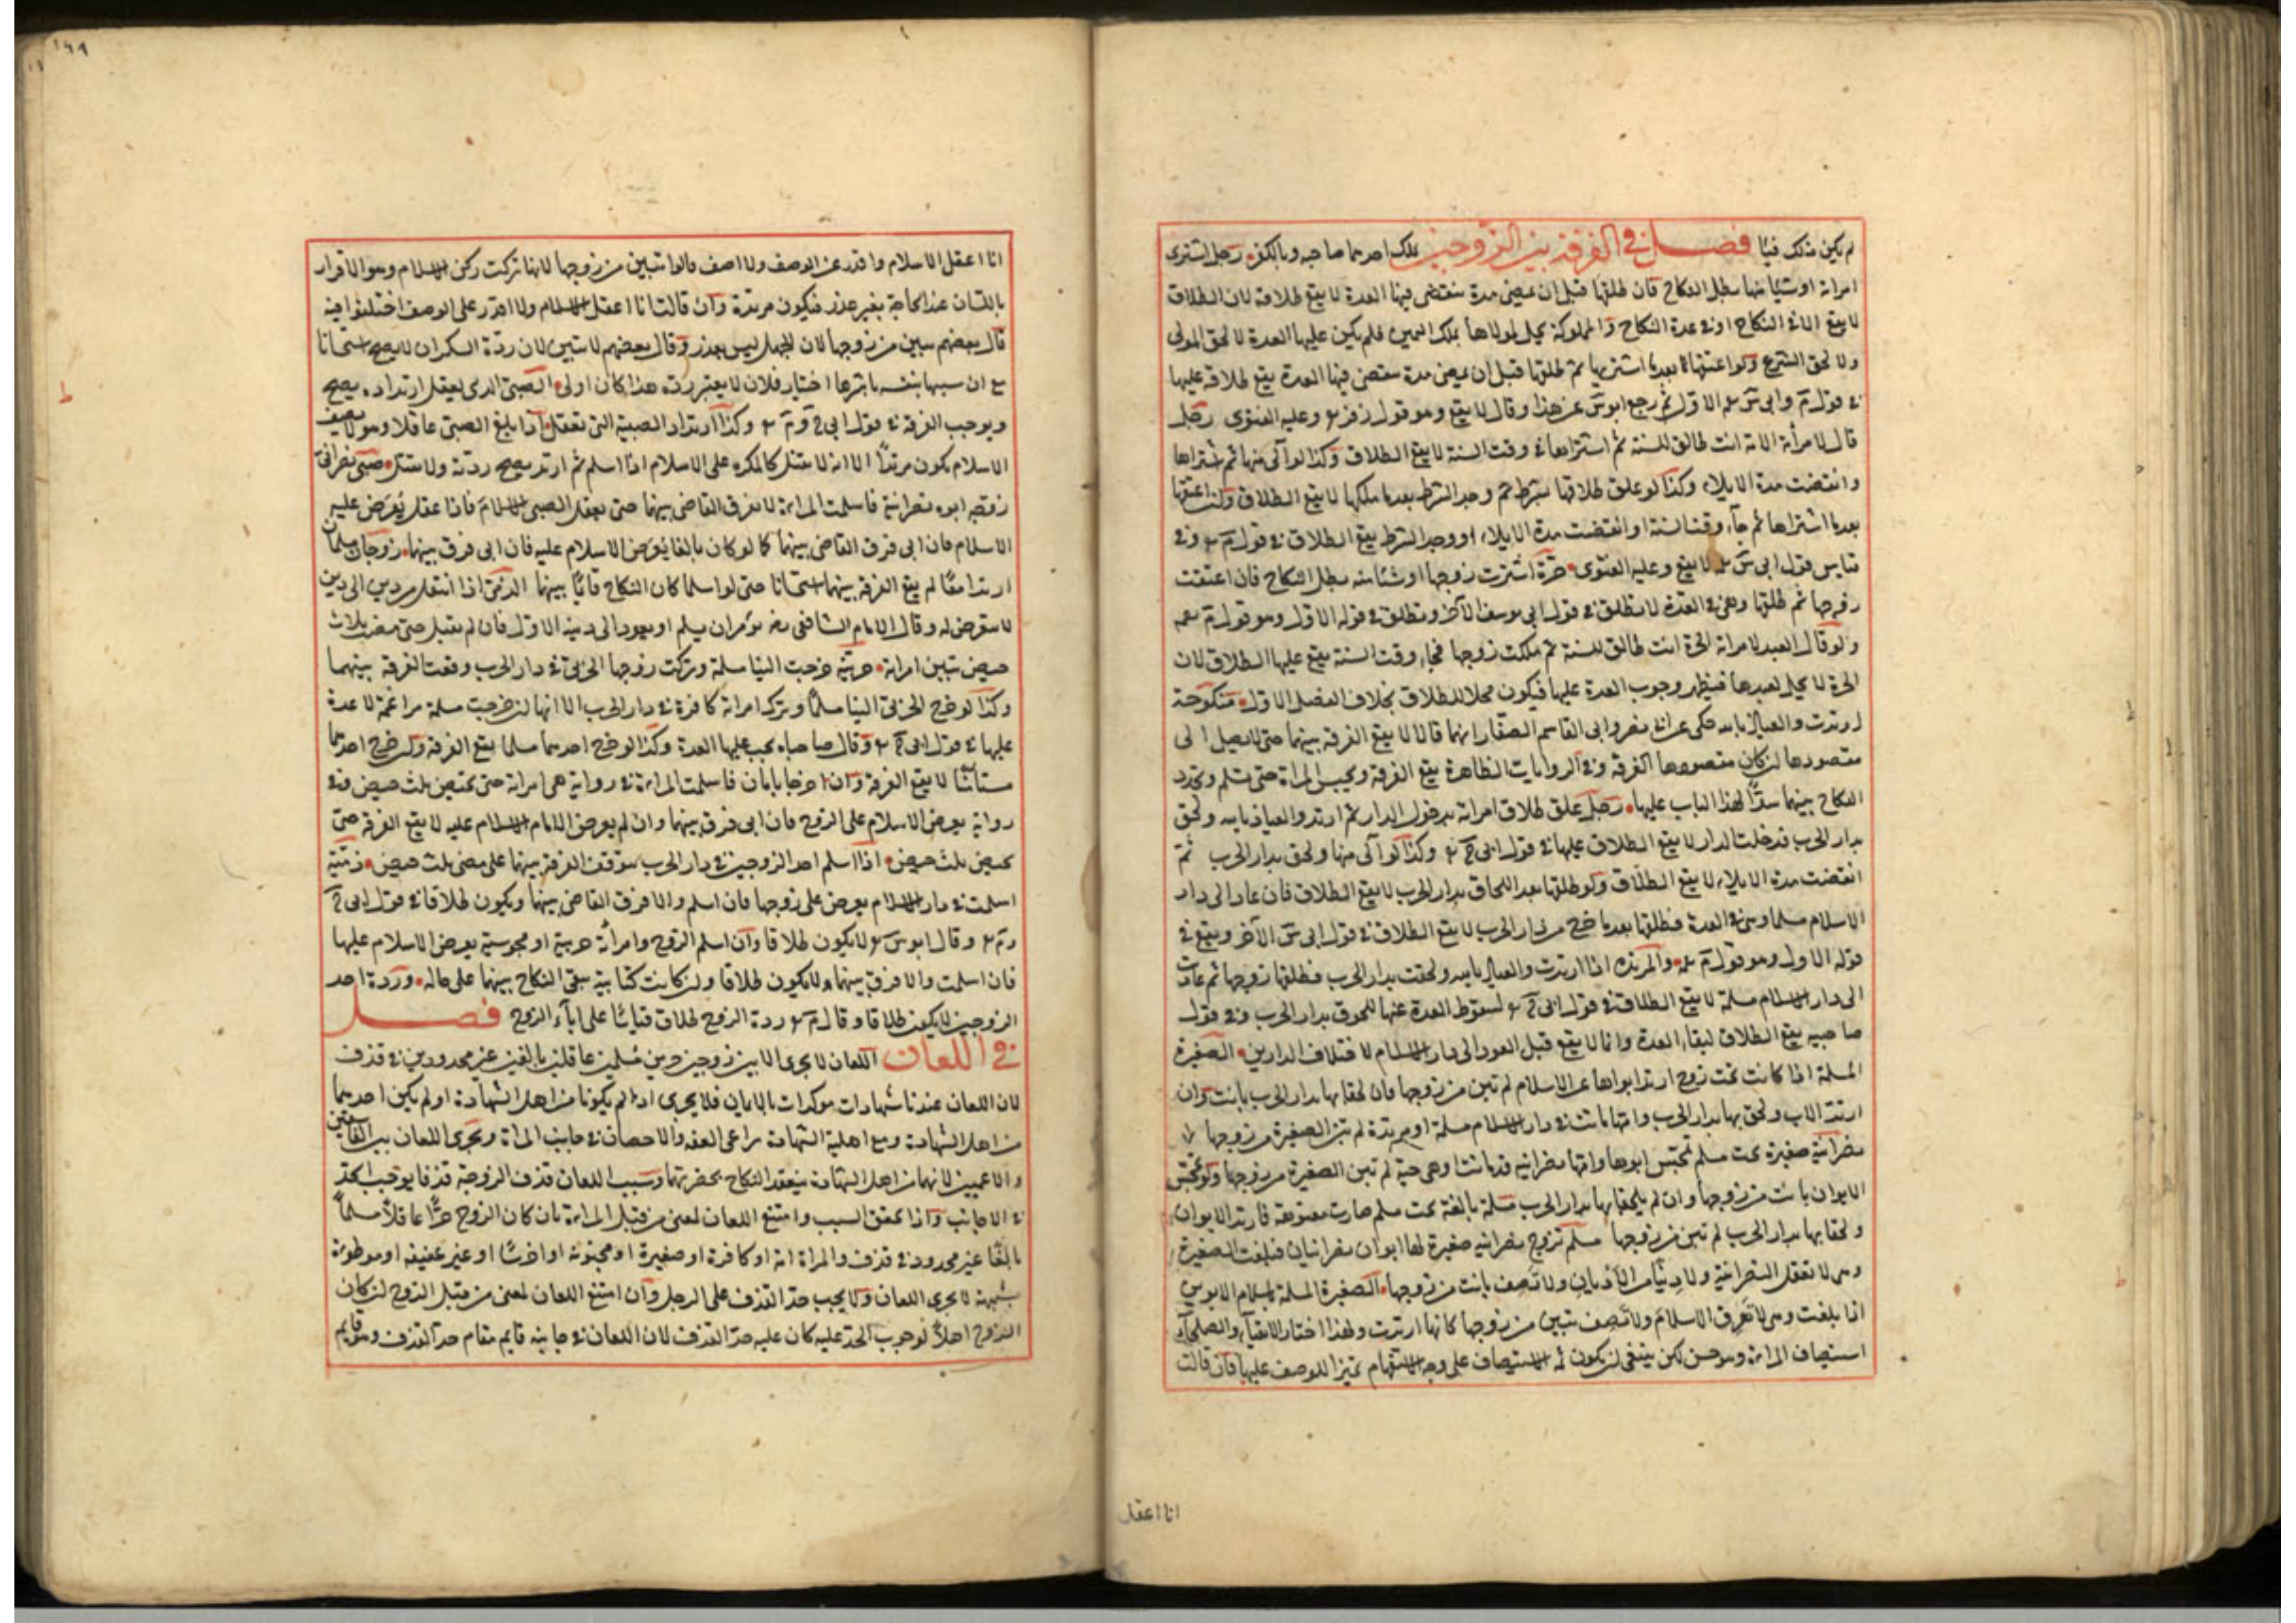 لم يكن ذلك فيئا فصل في الفرقة بين الزوجين بملك احدهما صاحبه وبالكفر رجل اشترى
امراته او شيئا منها بطل النكاح فان طلقها قبل ان يمضي مدة تنقضي فيها العدة لا يقع طلاقه لان الطلاق
لا يقع الا في النكاح او في عدة النكاح والمملوكة تحل لمولاها بملك اليمين فلم يكن عليها العدة لا لحق المولى
ولا لحق الشرع ولو اعتقها بعدما اشتريها ثم طلقها قبل ان يمضي مدة تنقضي فيها العدة يقع طلاقه عليها
في قول م وابي س الاول ثم رجع ابو س عن هذا وقال لا يقع وهو قول زفر وعليه الفتوى رجل
قال لامرأته الامة انت طالق للسنة ثم اشتراها في وقت السنة لا يقع الطلاق وكذا لو آلى منها ثم اشتراها
وانقضت مدة الايلاء وكذا لو علق طلاقها بشرط ثم وجد الشرط بعدما ملكها لا يقع الطلاق ولو اعتقها
بعدما اشتراها ثم جاء وقت السنة او انقضت مدة الايلاء او وجد الشرط يقع الطلاق في قول م وفي
قياس قول ابي س لا يقع وعليه الفتوى حرة اشترت زوجها او شيئا منه بطل النكاح فان اعتقت
زوجها ثم طلقها وهي في العدة لا تطلق في قول ابي يوسف الآخر وتطلق في قوله الاول وهو قول م
ولو قال العبد لامراته الحرة انت طالق للسنة ثم ملكت زوجها فجاء وقت السنة يقع عليها الطلاق لان
الحرة لا تحل لعبدها فيظهر وجوب العدة عليها فيكون محلا للطلاق بخلاف الفصل الاول منكوحة
ارتدت والعياذ بالله حكي عن ابي نصر وابي القاسم الصفار انهما قالا لا يقع الفرقة بينهما حتى لا يصل الى
مقصودها ان كان مقصودها الفرقة وفي الروايات الظاهرة يقع الفرقة ويحبس المراة حتى تسلم ويجدد
النكاح بينهما سدا لهذا الباب عليها رجل علق طلاق امراته بدخول الدار ثم ارتد والعياذ بالله ولحق
بدار الحرب فدخلت الدار لا يقع الطلاق عليها في قول ابي ح وكذا لو آلى منها ولحق بدار الحرب ثم
انقضت مدة الايلاء لا يقع الطلاق ولو طلقها بعد اللحاق بدار الحرب لا يقع الطلاق فان عاد الى دار
الاسلام مسلما وهي في العدة فطلقها بعدما خرج من دار الحرب لا يقع الطلاق في قول ابي س الآخر ويقع في
قوله الاول وهو قول م والمرتدة اذا ارتدت والعياذ بالله ولحقت بدار الحرب فطلقها زوجها ثم عادت
الى دار الاسلام مسلمة لا يقع الطلاق في قول ابي ح لسقوط العدة عنها للحوق بدار الحرب وفي قول
صاحبيه يقع الطلاق لبقاء العدة وانما لا يقع قبل العود الى دار الاسلام لاختلاف الدارين الصغيرة
المسلمة اذا كانت تحت زوج ارتد ابواها عن الاسلام لم تبن من زوجها فان لحقا بها بدار الحرب بانت وان
ارتد الاب ولحق بها بدار الحرب وامها ماتت في دار الاسلام مسلمة او مرتدة لم تبن الصغيرة من زوجها
نصرانية صغيرة تحت مسلم تمجس ابوها وامها نصرانية قد ماتت او هي حية لم تبن الصغيرة من زوجها ولو تمجس
الابوان بانت من زوجها وان لم يلحقا بها بدار الحرب مسلمة بالغة تحت مسلم صارت معتوهة فارتد الابوان
ولحقا بها بدار الحرب لم تبن من زوجها مسلم تزوج نصرانية صغيرة لها ابوان نصرانيان فبلغت الصغيرة
وهي لا تعقل النصرانية ولا دينا من الاديان ولا تصف بانت من زوجها الصغيرة المسلمة باسلام الابوين
اذا بلغت وهي لا تعرف الاسلام ولا تصف تبين من زوجها كانها ارتدت ولهذا اختار الاتقياء والصلحاء
استيصاف المراة وهو حسن لكن ينبغي ان يكون الاستيصاف على وجه الاستفهام تميزا للوصف عليها فان قالت
انا اعقل
انا اعقل الاسلام واقدر على الوصف ولا اصف قالوا تبين من زوجها لانها تركت ركن الاسلام وهو الاقرار
باللسان عند الحاجة بغير عذر فيكون مرتدة وان قالت انا اعقل الاسلام ولا اقدر على الوصف اختلفوا فيه
قال بعضهم تبين من زوجها لان الجهل ليس بعذر وقال بعضهم لا تبين لان ردة السكران لا يصح استحسانا
مع ان سببها بنفسه باشرها اختيار فلان لا يعتبر ردة هذا كان اولى الصبي الذي يعقل ارتداده يصح
ويوجب الفرقة في قول ابي ح وم وكذا ارتداد الصبية التي تعقل اذا بلغ الصبي عاقلا وهو لا يصف
الاسلام يكون مرتدا الا انه لا يقتل كالمكره على الاسلام اذا اسلم ثم ارتد يصح ردته ولا يقتل صبي نصراني
زوجه ابوه نصرانية فاسلمت المراة لا يفرق القاضي بينهما حتى يعقل الصبي الاسلام فاذا عقل يعرض عليه
الاسلام فان ابى فرق القاضي بينهما كما لو كان بالغا يعرض الاسلام عليه فان ابى فرق بينهما زوجان مسلمان
ارتدا معا لم يقع الفرقة بينهما استحسانا حتى لو اسلما كان النكاح قائما بينهما الذمي اذا انتقل من دين الى دين
لا يتعرض له وقال الامام الشافعي رضه يؤمر ان يسلم او يعود الى دينه الاول فان لم يقبل حتى مضت ثلاث
حيض تبين امراته حربية خرجت الينا مسلمة وتركت زوجها الحربي في دار الحرب وقعت الفرقة بينهما
وكذا لو خرج الحربي الينا مسلما وترك امراته كافرة في دار الحرب الا انها ان خرجت مسلمة مراغمة لا عدة
عليها في قول ابي ح وقال صاحباه يجب عليها العدة وكذا لو خرج احدهما مسلما يقع الفرقة ولو خرج احدهما
مستأمنا لا يقع الفرقة وان خرجا بامان فاسلمت المراة في رواية هي امراته حتى تحيض ثلث حيض وفي
رواية يعرض الاسلام على الزوج فان ابى فرق بينهما وان لم يعرض الامام الاسلام عليه لا يقع الفرقة حتى
تحيض ثلث حيض اذا اسلم احد الزوجين في دار الحرب يتوقف الفرقة بينهما على مضي ثلث حيض ذمية
اسلمت في دار الاسلام يعرض على زوجها فان اسلم والا فرق القاضي بينهما ويكون طلاقا في قول ابي ح
وم وقال ابو س لا يكون طلاقا وان اسلم الزوج وامرأته حربية او مجوسية يعرض الاسلام عليها
فان اسلمت والا فرق بينهما ولا يكون طلاقا وان كانت كتابية يبقى النكاح بينهما على حاله وردة احد
الزوجين لا يكون طلاقا وقال م ردة الزوج طلاق قياسا على اباء الزوج فصل
في اللعان اللعان لا يجرى الا بين زوجين حرين مسلمين عاقلين بالغين غير محدودين في قذف
لان اللعان عندنا شهادات موكدات بالايمان فلا يجرى اذا لم يكونا من اهل الشهادة او لم يكن احدهما
من اهل الشهادة ومع اهلية الشهادة يراعى العفة والاحصان في جانب المراة ويجرى اللعان بين الفاسقين
والاعميين لانهما من اهل الشهادة ينعقد النكاح بحضرتهما وسبب اللعان قذف الزوجة قذفا يوجب الحد
في الاجانب واذا تحقق السبب وامتنع اللعان لمعنى من قبل المراة بان كان الزوج حرا عاقلا مسلما
بالغا غير محدود في قذف والمراة امة او كافرة او صغيرة او مجنونة او اخرسا او غير عفيفه او موطوءة
بشبهة لا يجرى اللعان ولا يجب حد القذف على الرجل وان امتنع اللعان لمعنى من قبل الزوج ان كان
الزوج اهلا لوجوب الحد عليه كان عليه حد القذف لان اللعان في جانبه قايم مقام حد القذف وهو قايم